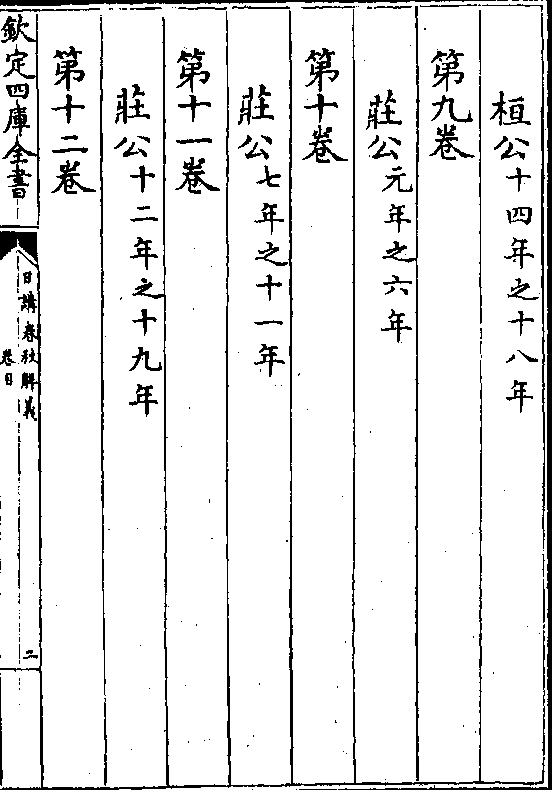 桓公十四年之十八年
第九卷
莊公元年之六年
第十卷
莊公七年之十一年
第十一卷
莊公十二年之十九年
第十二卷
欽定四庫全書
日講春秋解義
卷目
二